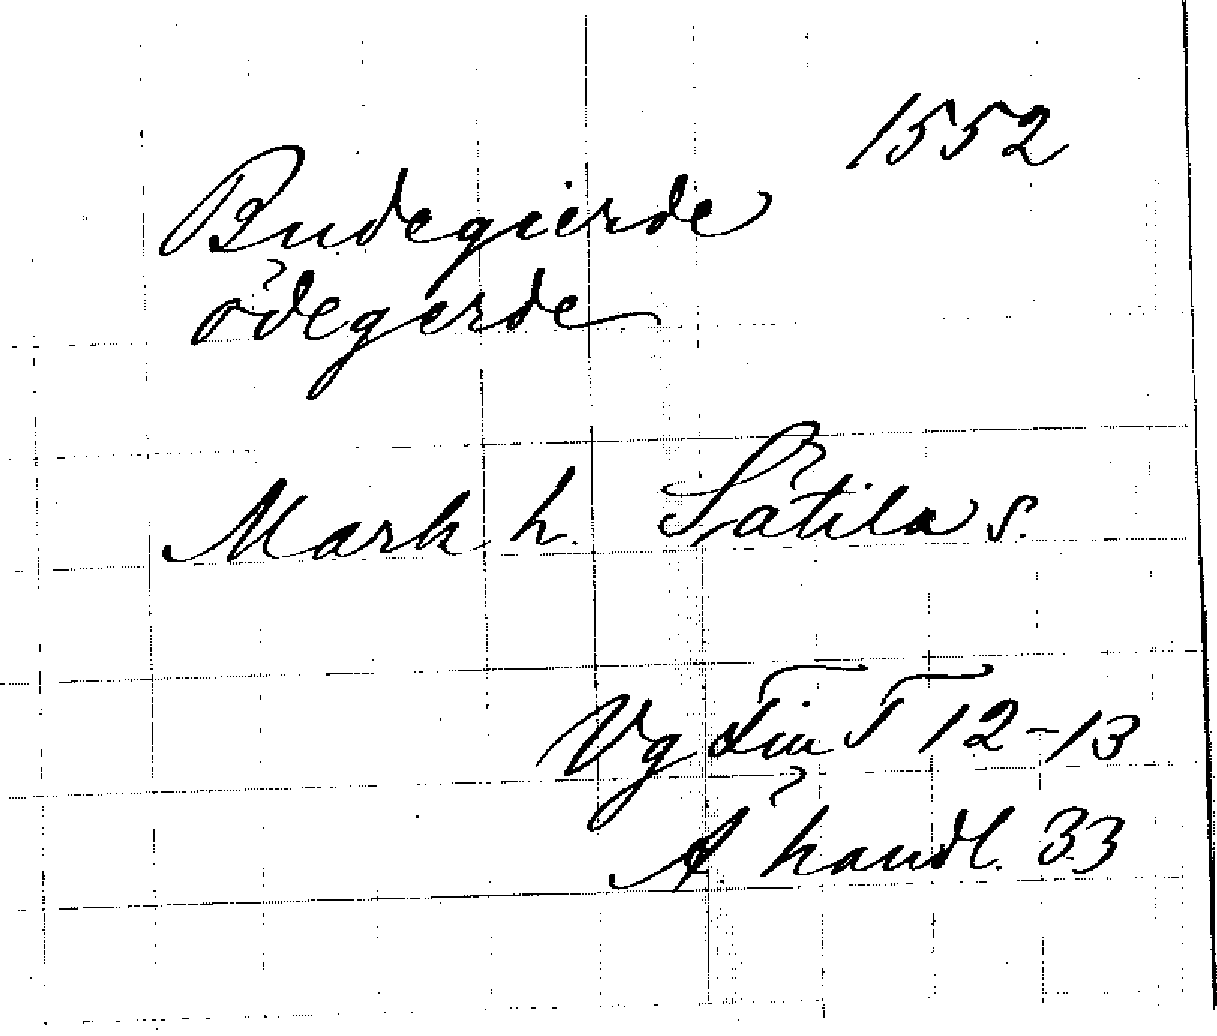 1552
Budegierde
ödegerde
Mark h. Sätila s.
Vg Fin T 12-13
Å handl. 33